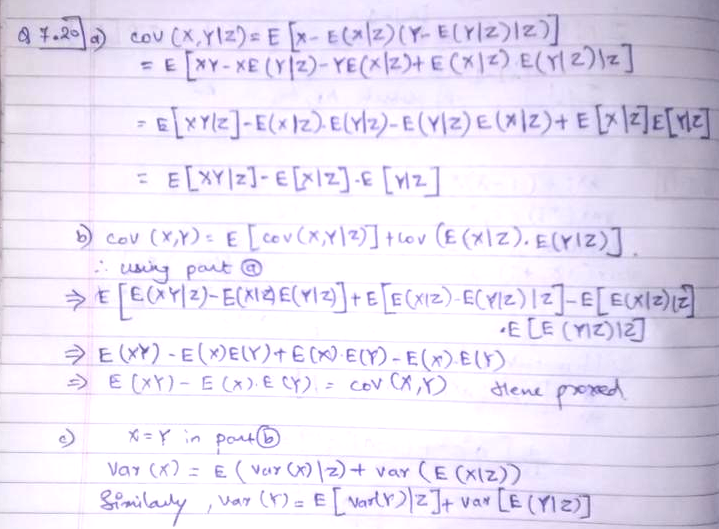 Q 7.20) a) cov (X,Y|Z) = E [X - E(X|Z) (Y - E(Y|Z)|Z)]
= E [XY - XE (Y|Z) - YE(X|Z) + E (X|Z) E(Y|Z)|Z]
= E[XY|Z] - E(X|Z). E(Y|Z) - E(Y|Z) E(X|Z) + E [X|Z] E[Y|Z]
= E[XY|Z] - E[X|Z] . E [Y|Z]
b) cov (X,Y) = E [cov(X,Y|Z)] + cov (E(X|Z). E(Y|Z)].
∴ using part ⓐ
⇒ E [E(XY|Z) - E(X|Z) E(Y|Z)] + E [E(X|Z) . E(Y|Z) | Z] - E[E(X|Z)|Z]
. E [E (Y|Z)|Z]
⇒ E (XY) - E(X)E(Y) + E(X). E(Y) - E(X). E(Y)
⇒ E (XY) - E (X). E (Y). = cov (X,Y) Hene proved
c) X = Y in part ⓑ
Var (X) = E (var (X)|Z) + var (E (X|Z))
Similarly , var (Y) = E [var(Y)|Z] + var [E (Y|Z)]